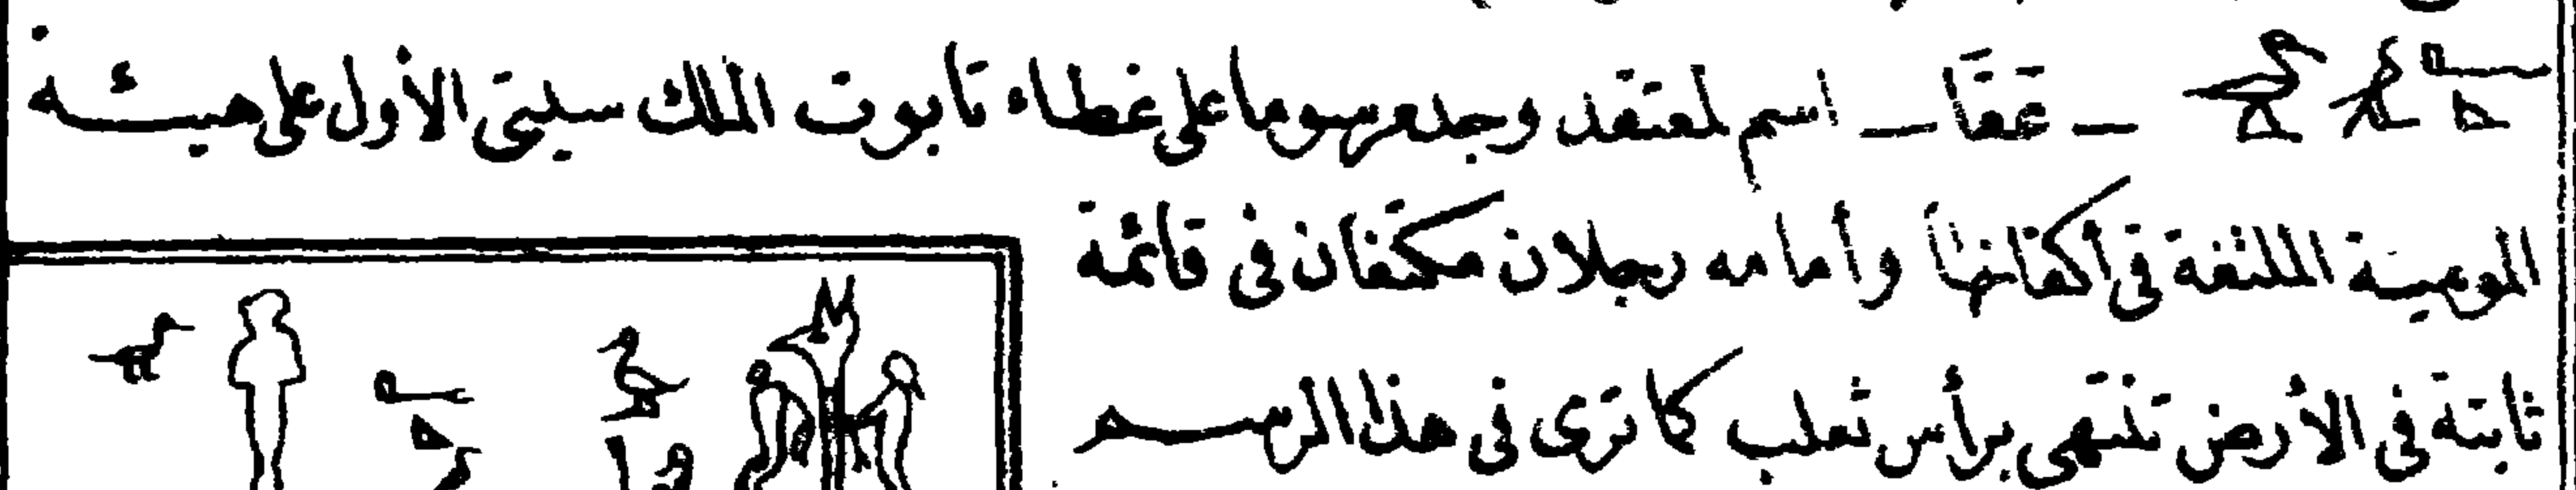 — عَقَا — اسم لمعتقد وجد مرسوما على غطاء تابوت الملك سيتى الأول على هيئة
المومية الملتفة فى أكفانها وأمامه رجلان مكتفان فى قائمة
ثابتة فى الأرض تنتهى برأس ثعلب كما ترى فى هذا الرسم